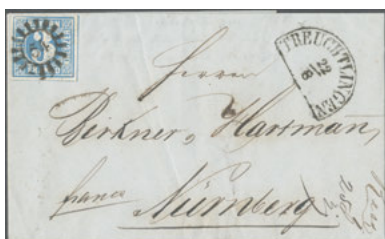 TREUCHTLINGEN
22
8
Herren
Birkner & Hartman,
franco
Nürnberg